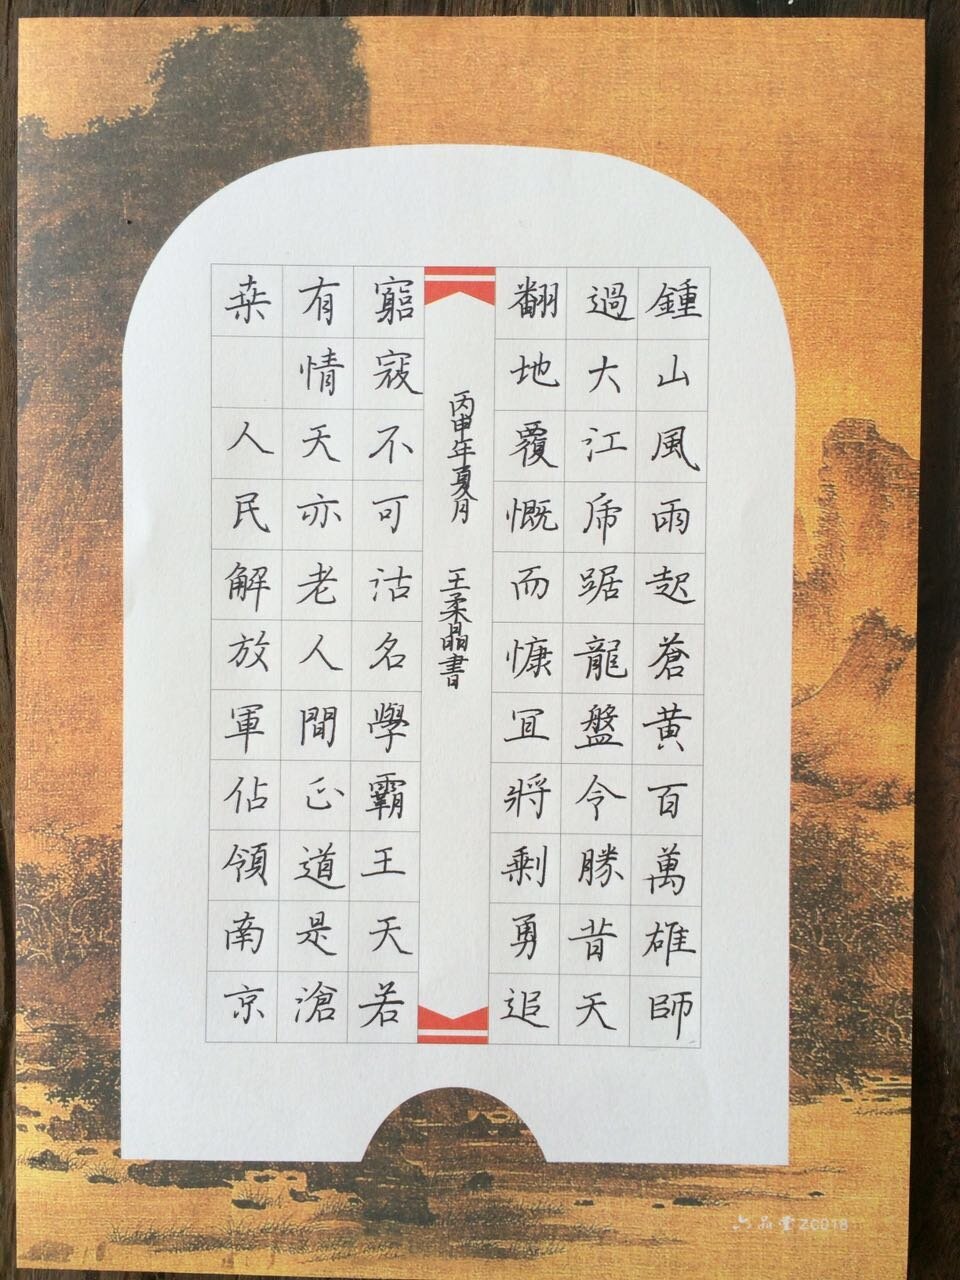 鍾山風雨起蒼黃百萬雄師
過大江虎踞龍盤令勝昔天
翻地覆慨而慷宜將剩勇追
丙申年夏月 王柔晶書
窮寇不可沽名學霸王天若
有情天亦老人間正道是滄
桒 人民解放軍佔領南京
六品堂ZC018